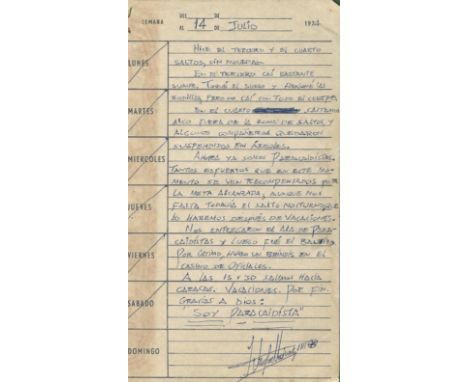 SEMANA
DEL DE
AL 14 DE JULIO 197
LUNES
MARTES
MIERCOLES
JUEVES
VIERNES
SABADO
DOMINGO
HICE EL TERCERO Y EL CUARTO
SALTOS, SIN NOVEDAD.
EN EL TERCERO CAÍ BASTANTE
SUAVE. TOMÉ EL SUELO Y FLEXIONÉ LAS
RODILLAS, PERO NO CAÍ CON TODO EL CUERPO.
EN EL CUARTO CAÍMOS
ALGO FUERA DE LA ZONA DE SALTOS Y
ALGUNOS COMPAÑEROS QUEDARON
SUSPENDIDOS EN ÁRBOLES.
AHORA YA SOMOS PARACAIDISTAS.
TANTOS ESFUERZOS QUE EN ESTE MO-
MENTO SE VEN RECOMPENSADOS POR
LA META ALCANZADA, AUNQUE NOS
FALTA TODAVÍA EL SALTO NOCTURNO QUE
LO HAREMOS DESPUÉS DE VACACIONES.
NOS ENTREGARON EL ALA DE PARA-
CAIDISTAS Y LUEGO FUÉ EL BAUTIZO
POR ÚLTIMO, HUBO UN BRINDIS EN EL
CASINO DE OFICIALES.
A LAS 15 Y 30 SALIMOS HACIA
CARACAS. VACACIONES. POR FIN.
GRACIAS A DIOS:
"SOY PARACAIDISTA"